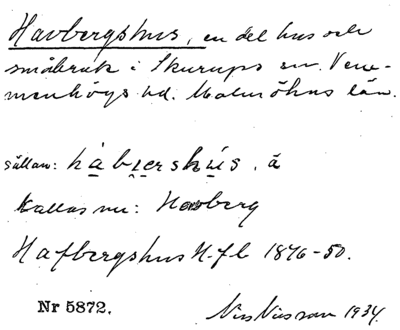 Havbergshus, en del hus och
småbruk i Skurups sn. Vem-
menhögs hd. Malmöhus län.
sällan: håbjershus, å
Kallas nu: Havberg
Hafbergshus H-fl 1846-50.
Nr 5872. Nils Nilsson 1934.